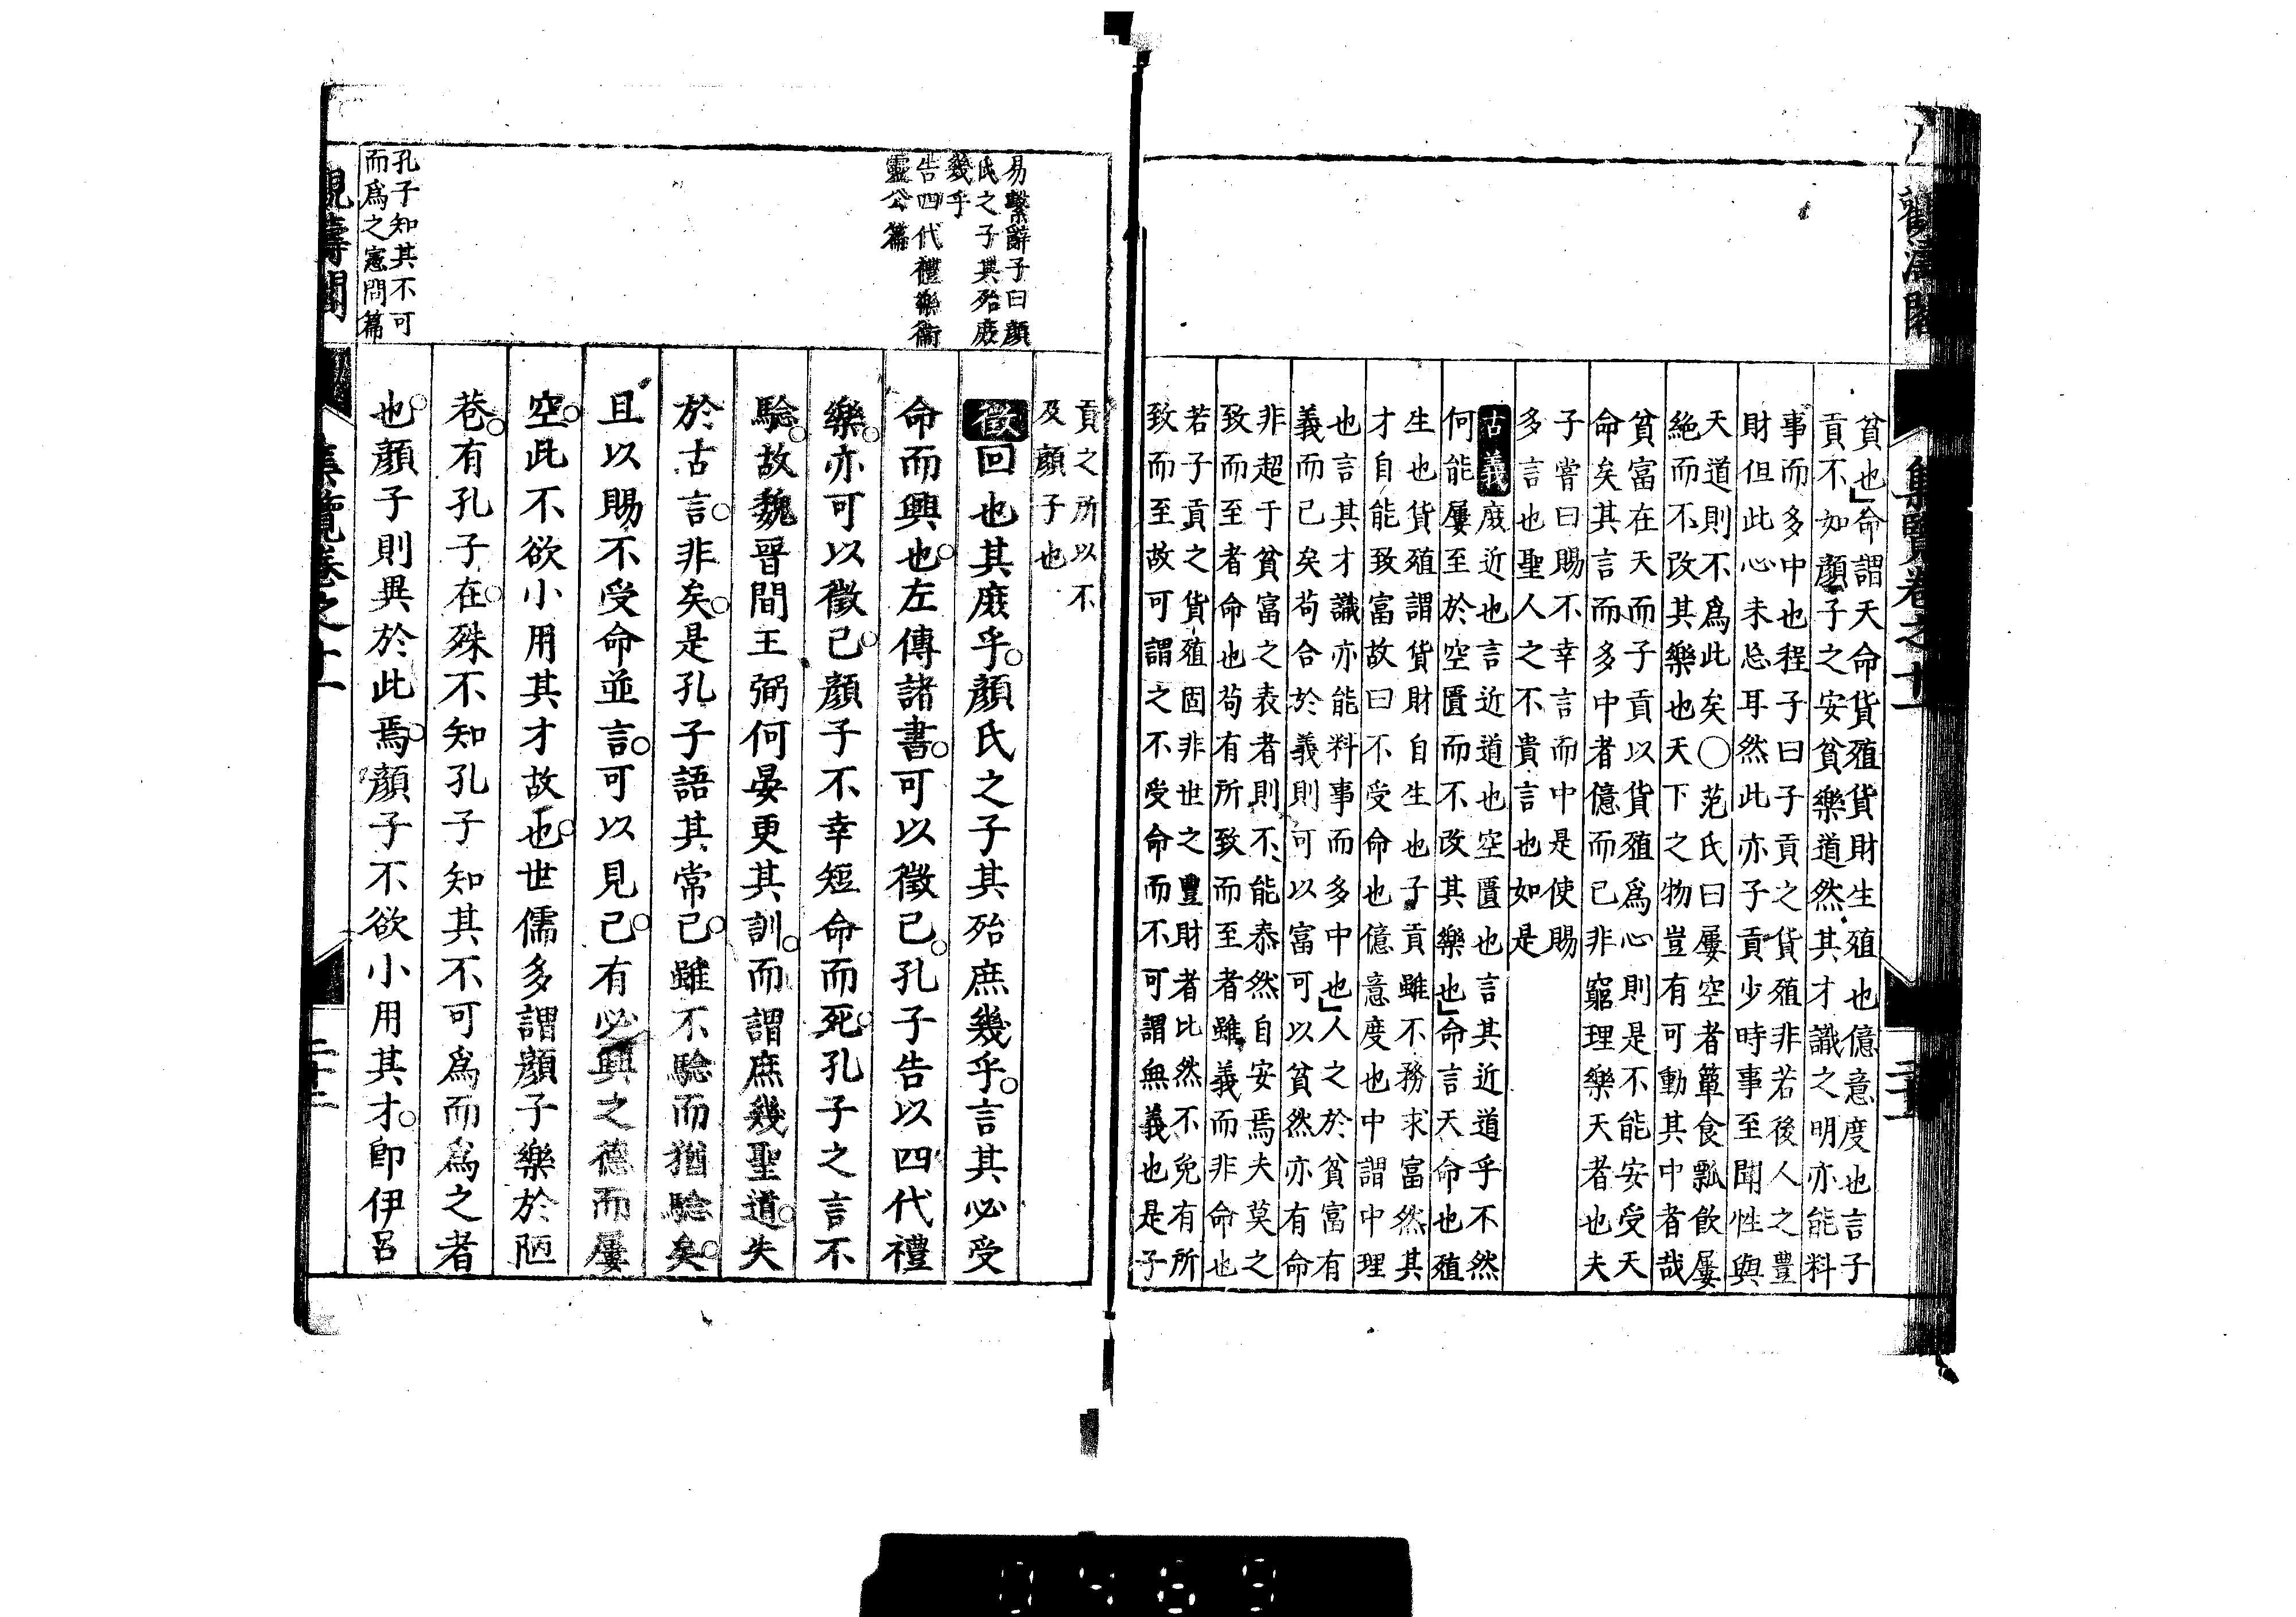 觀濤閣
集覽卷之十一
貧也命謂天命貨殖貨財生殖也億意度也言子
貢不如顏子之安貧樂道然其才識之明亦能料
事而多中也程子曰子貢之貨殖非若後人之豐
財但此心未忘耳然此亦子貢少時事至聞性與
天道則不爲此矣○范氏曰屢空者簞食瓢飲屢
絶而不改其樂也天下之物豈有可動其中者哉
貧富在天而子貢以貨殖爲心則是不能安受天
命矣其言而多中者億而已非窮理樂天者也夫
子嘗曰賜不幸言而中是使賜
多言也聖人之不貴言也如是
古義庻近也言近道也空匱也言其近道乎不然
何能屢至於空匱而不改其樂也命言天命也殖
生也貨殖謂貨財自生也子貢雖不務求富然其
才自能致富故曰不受命也億意度也中謂中理
也言其才識亦能料事而多中也人之於貧富有
義而已矣苟合於義則可以富可以貧然亦有命
非超于貧富之表者則不能泰然自安焉夫莫之
致而至者命也苟有所致而至者雖義而非命也
若子貢之貨殖固非世之豐財者比然不免有所
致而至故可謂之不受命而不可謂無義也是子
貢之所以不
及顏子也
易繫辭子曰顏
氏之子其殆庻
幾乎
告四代禮樂衞
靈公篇
徵回也其庻乎顏氏之子其殆庶幾乎言其必受
命而興也左傳諸書可以徵已孔子告以四代禮
樂亦可以徵已顏子不幸短命而死孔子之言不
驗故魏晉間王弼何晏更其訓而謂庶幾聖道失
於古言非矣是孔子語其常已雖不驗而猶驗矣
且以賜不受命並言可以見已有必興之德而屢
空此不欲小用其才故也世儒多謂顏子樂於陋
巷有孔子在殊不知孔子知其不可爲而爲之者
也顏子則異於此焉顏子不欲小用其才卽伊呂
孔子知其不可
而爲之憲問篇
觀濤閣
集覽卷之十一